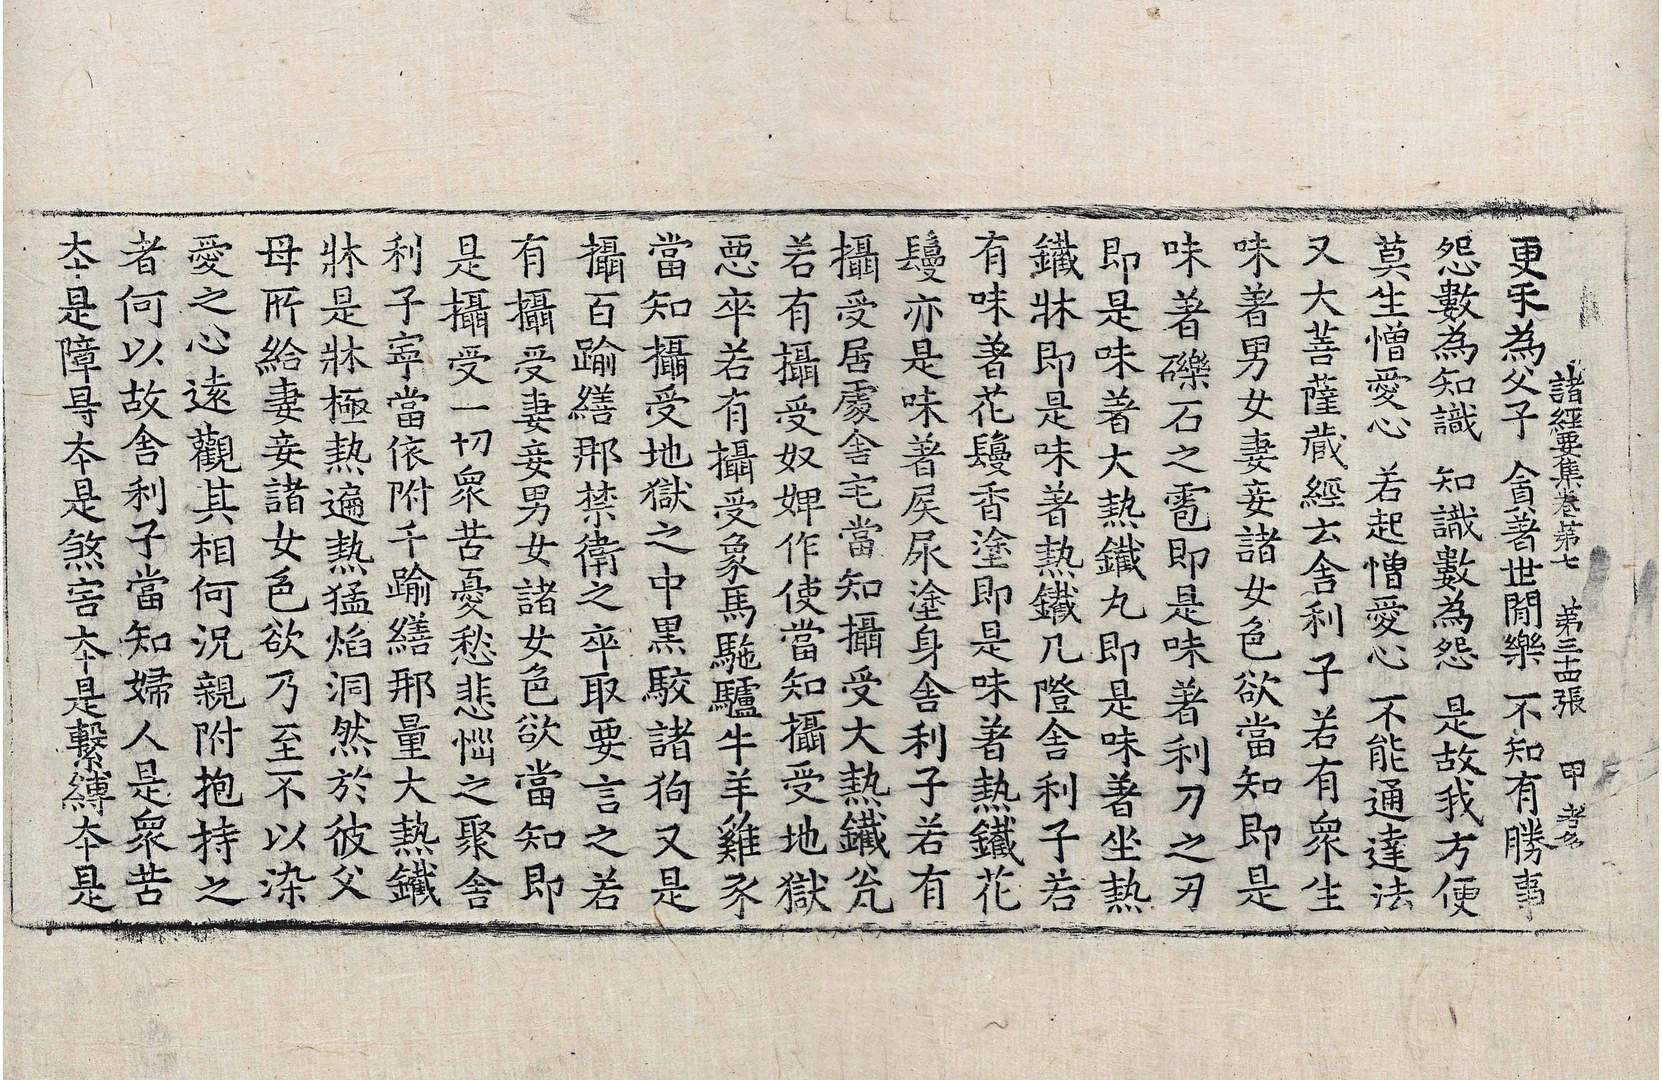 諸經要集卷第七 第三十四張 甲
更互為父子 貪著世閒樂 不知有勝事
怨數為知識 知識數為怨 是故我方便
莫生憎愛心 若起憎愛心 不能通達法
又大菩薩藏經云舍利子若有衆生
味著男女妻妾諸女色欲當知即是
味著礫石之雹即是味著利刀之刃
即是味著大熱鐵丸即是味著坐熱
鐵牀即是味著熱鐵几隥舍利子若
有味著花鬘香塗即是味著熱鐵花
鬘亦是味著屎尿塗身舍利子若有
攝受居處舍宅當知攝受大熱鐵瓮
若有攝受奴婢作使當知攝受地獄
惡卒若有攝受象馬駞驢牛羊雞豕
當知攝受地獄之中黑駮諸狗又是
攝百踰繕那禁衛之卒取要言之若
有攝受妻妾男女諸女色欲當知即
是攝受一切衆苦憂愁悲惱之聚舍
利子寧當依附千踰繕那量大熱鐵
牀是牀極熱遍熱猛焰洞然於彼父
母所給妻妾諸女色欲乃至不以染
愛之心遠觀其相何況親附抱持之
者何以故舍利子當知婦人是衆苦
夲是障㝵夲是煞害夲是繫縛夲是